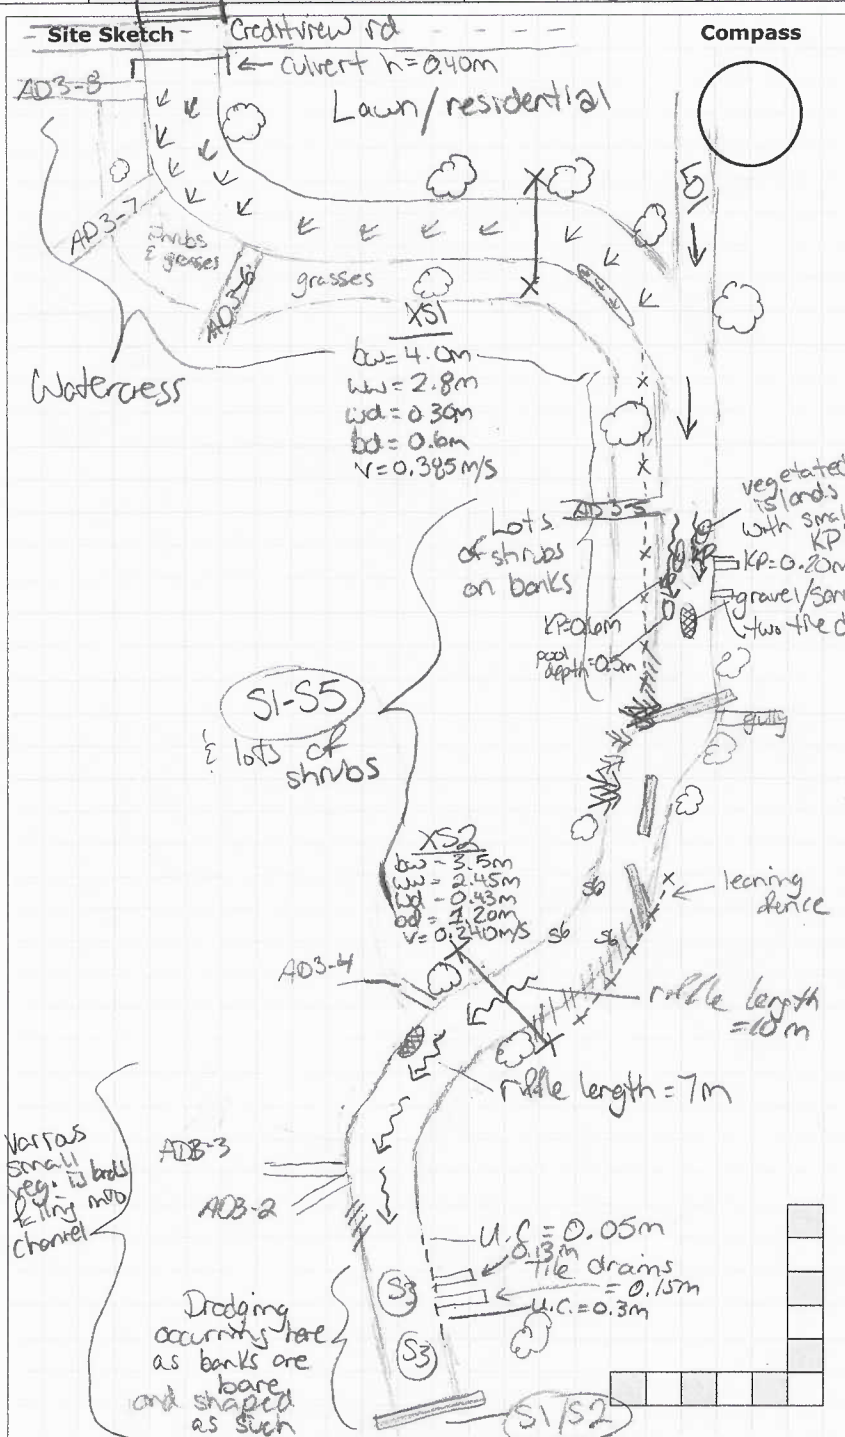 Site Sketch
Creditview rd
Compass
culvert h=0.40m
AD3-8
Lawn/residential
AD3-7
Shrubs
& grasses
AD3-6
grasses
Watercress
XS1
bw=4.0m
ww=2.8m
wd=0.30m
bd=0.6m
v=0.385m/s
AD3-5
Lots
of shrubs
on banks
vegetated
islands
with small
KP
KP=0.20m
gravel/San
two tile d
KP=0.6m
pool
depth=0.5m
gully
S1-S5
& lots of
shrubs
XS2
bw=3.5m
ww=2.45m
wd=0.43m
bd=1.20m
v=0.240m/s
S6
S6
S6
leaning
fence
AD3-4
riffle length
=10m
riffle length=7m
various
small
veg. islands
falling into
channel
AD3-3
AD3-2
U.C=0.05m
0.13m
Tile drains
=0.15m
U.C.=0.3m
S3
S3
Dredging
occurring here
as banks are
bare
and shaped
as such
S1/S2